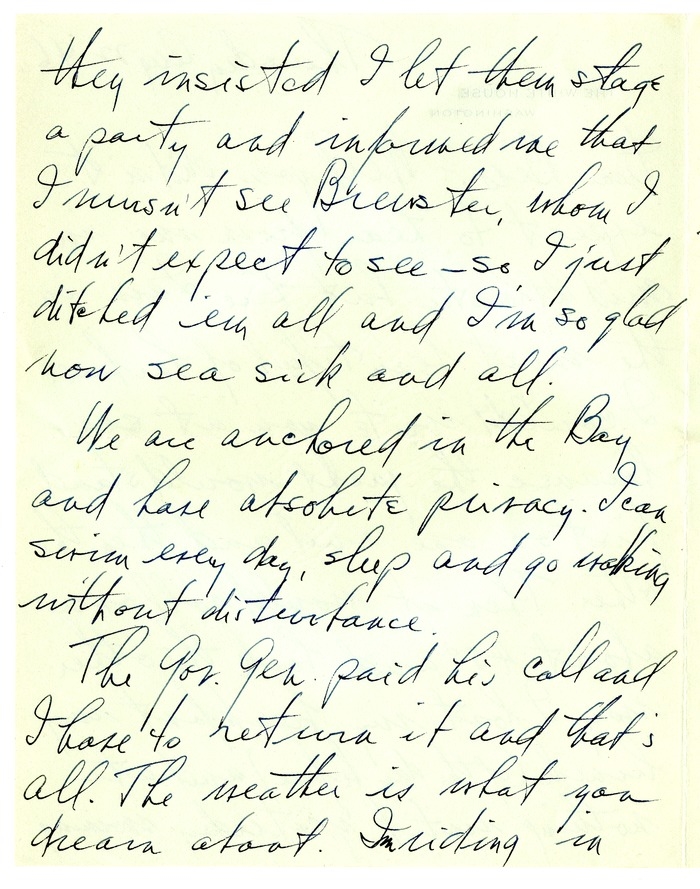 they insisted I let them stage
a party and informed me that
I musn't see Brewster, whom I
didn't expect to see – so I just
ditched 'em all and I'm so glad
now sea sick and all.
We are anchored in the Bay
and have absolute privacy. I can
swim every day, sleep and go walking
without disturbance.
The Gov. Gen. paid his call and
I have to return it and that's
all. The weather is what you
dream about. I'm riding in